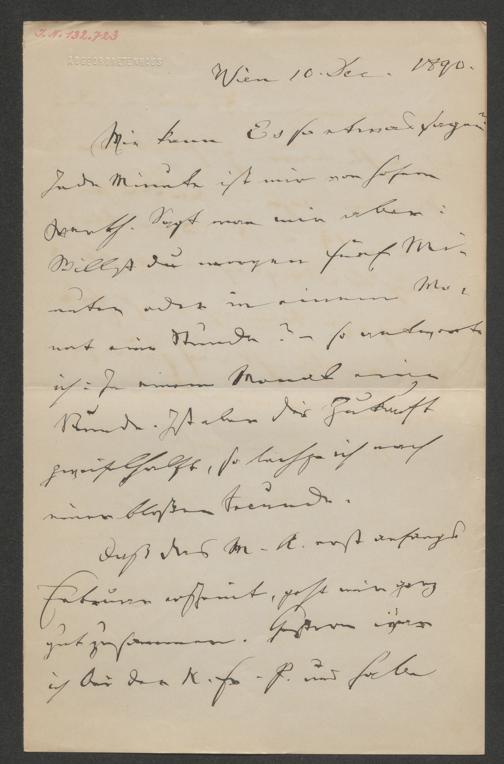 I.N. 132.723
ABGEORDNETENHAUS
Wien 10. Dec. 1890.
Wie kann Er so etwas sagen?
Jede Minute ist mir von hohem
Werth. Sagt man mir aber:
Willst du morgen fünf Mi-
nuten oder in einem Mo-
nat eine Stunde? – so antworte
ich: In einem Monat eine
Stunde. Ist aber die Zukunft
zweifelhaft, so lechze ich nach
einer bloßen Secunde.
Daß das M.-A. erst anfangs
Februar erscheint, paßt mir ganz
gut zusammen. Gestern war
ich bei der N. fr. P. und habe